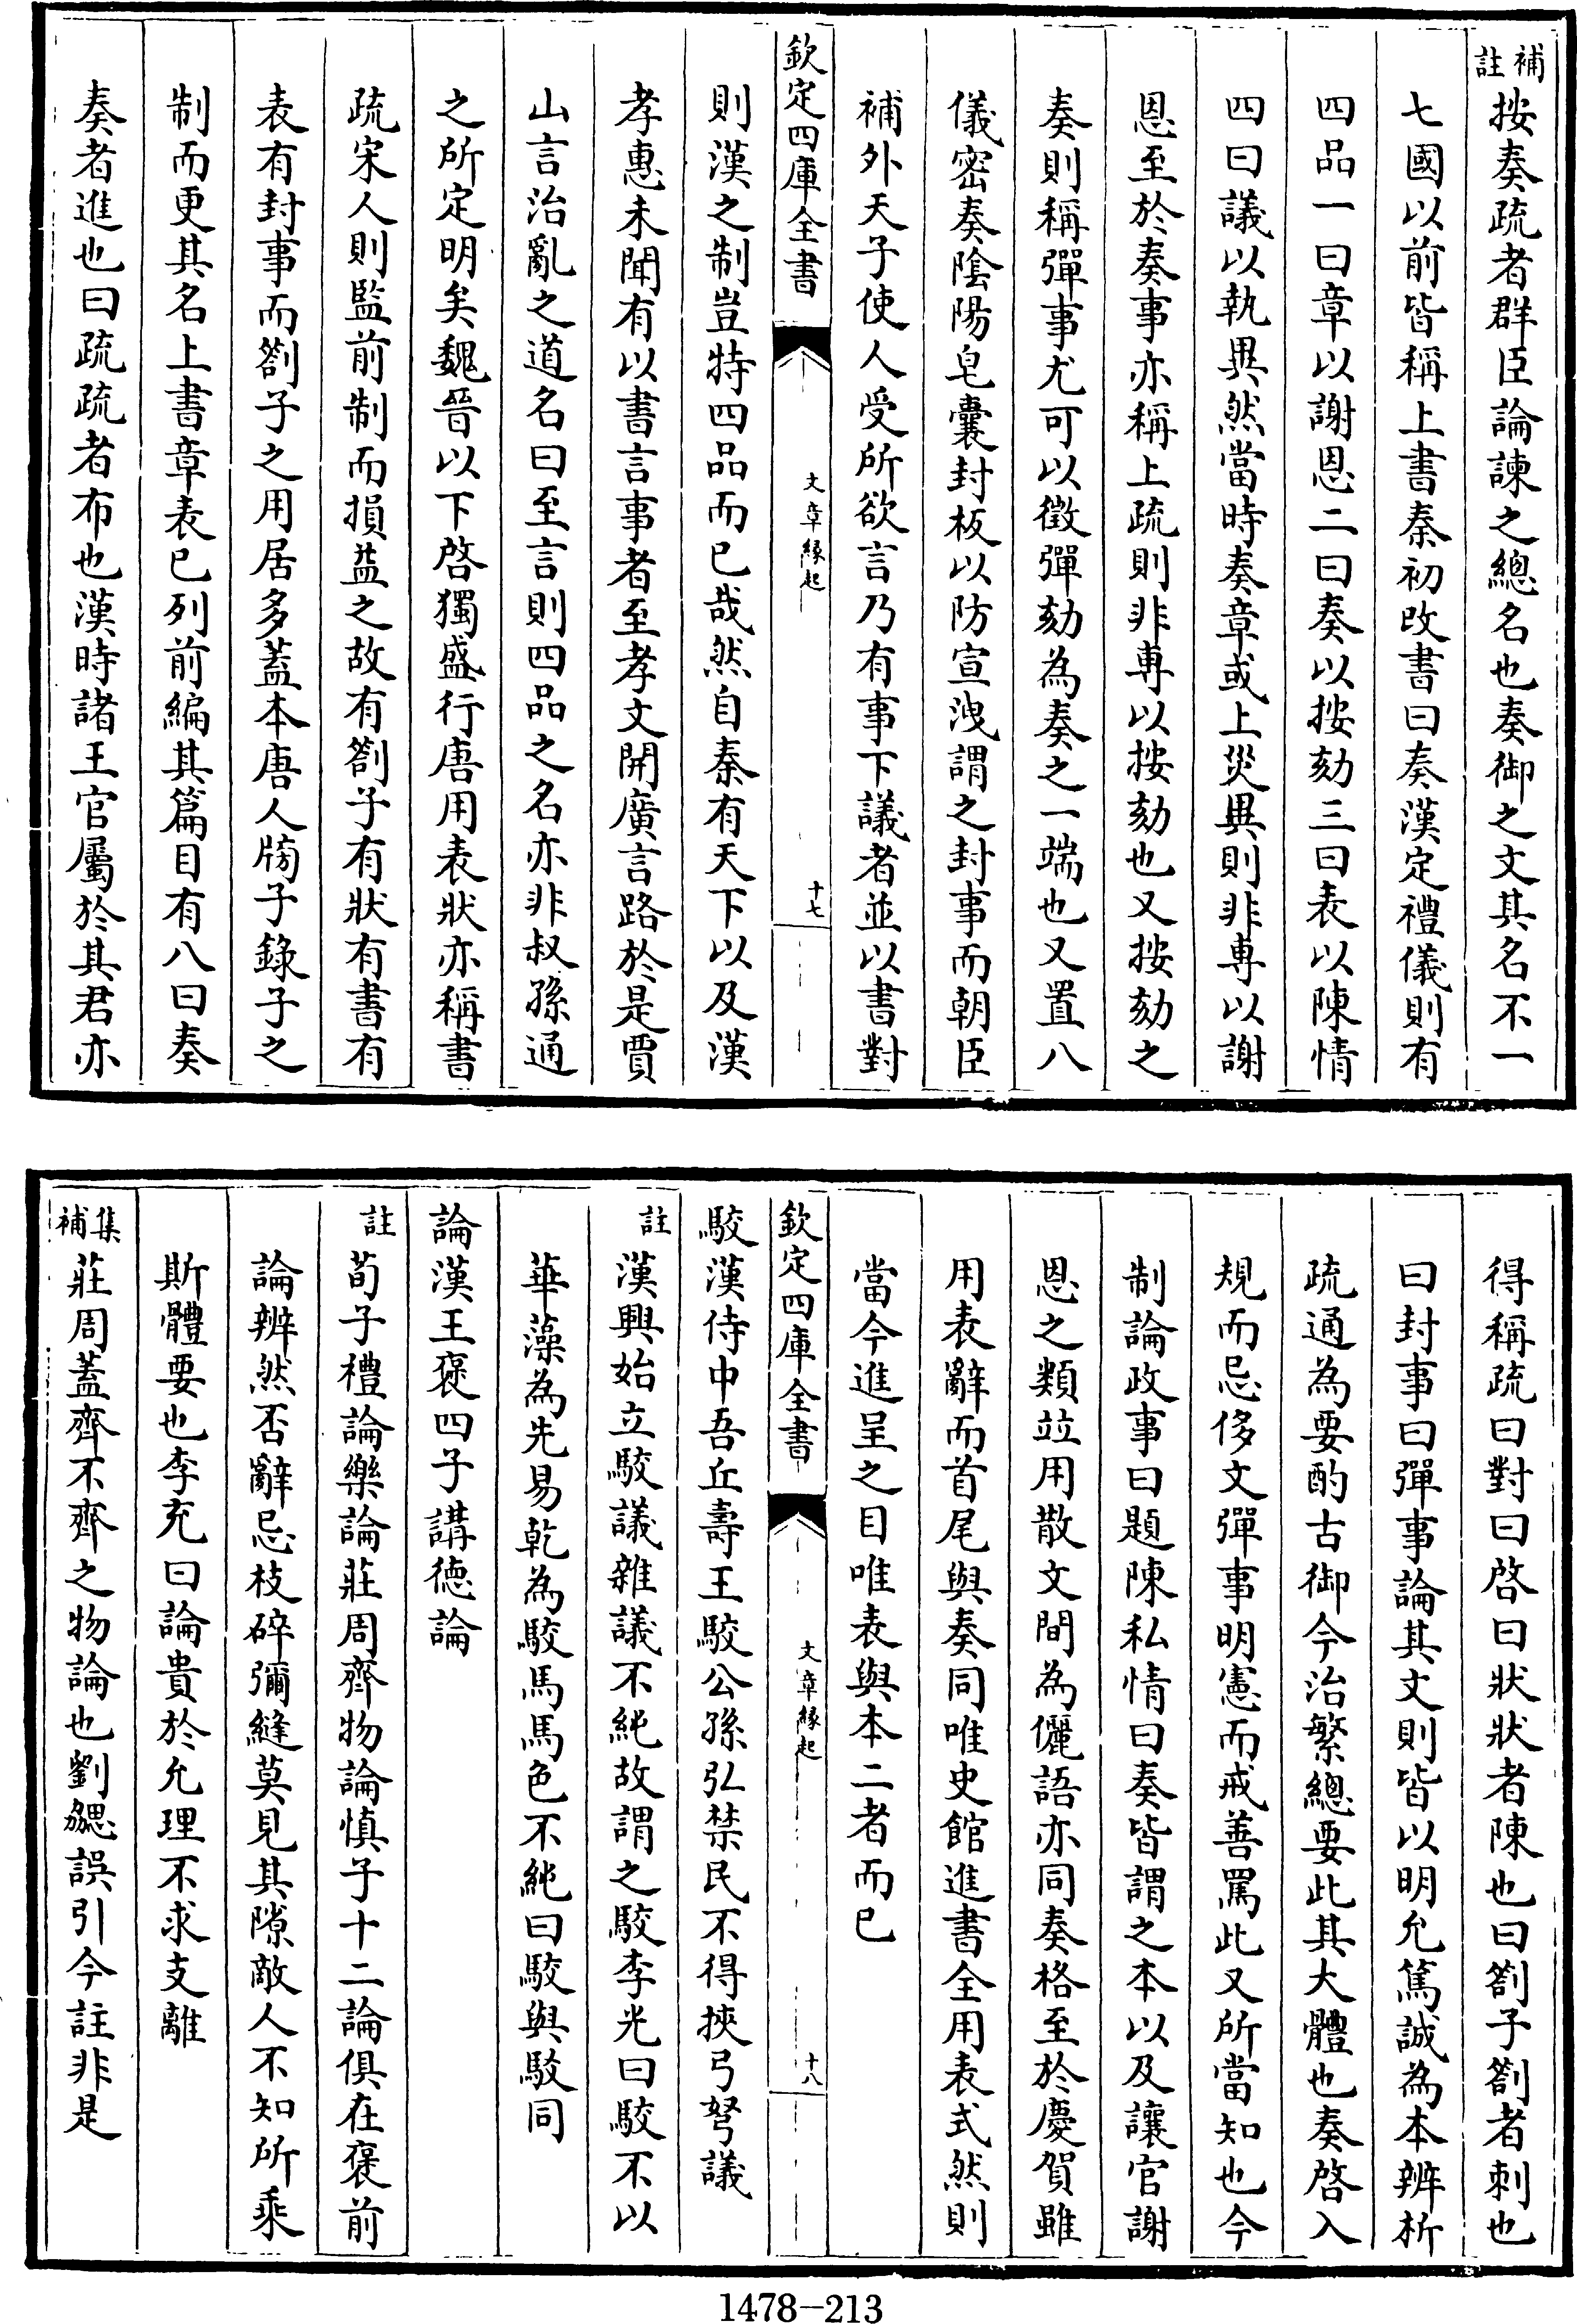 補註按奏疏者群臣論諫之總名也奏御之文其名不一
七國以前皆稱上書秦初改書曰奏漢定禮儀則有
四品一曰章以謝恩二曰奏以按劾三曰表以陳情
四曰議以執異然當時奏章或上災異則非專以謝
恩至於奏事亦稱上疏則非專以按劾也又按劾之
奏則稱彈事尤可以徵彈劾為奏之一端也又置八
儀密奏陰陽皂囊封板以防宣洩謂之封事而朝臣
補外天子使人受所欲言乃有事下議者並以書對
欽定四庫全書 文章緣起 十七
則漢之制豈特四品而已哉然自秦有天下以及漢
孝惠未聞有以書言事者至孝文開廣言路於是賈
山言治亂之道名曰至言則四品之名亦非叔孫通
之所定明矣魏晉以下啓獨盛行唐用表狀亦稱書
疏宋人則監前制而損益之故有劄子有狀有書有
表有封事而劄子之用居多蓋本唐人牓子錄子之
制而更其名上書章表已列前編其篇目有八曰奏
奏者進也曰疏疏者布也漢時諸王官屬於其君亦
得稱疏曰對曰啓曰狀狀者陳也曰劄子劄者刺也
曰封事曰彈事論其文則皆以明允篤誠為本辨析
疏通為要酌古御今治繁總要此其大體也奏啓入
規而忌侈文彈事明憲而戒善罵此又所當知也今
制論政事曰題陳私情曰奏皆謂之本以及讓官謝
恩之類竝用散文間為儷語亦同奏格至於慶賀雖
用表辭而首尾與奏同唯史館進書全用表式然則
當今進呈之目唯表與本二者而已
欽定四庫全書 文章緣起 十八
駮漢侍中吾丘壽王駮公孫弘禁民不得挾弓弩議
註漢興始立駮議雜議不純故謂之駮李充曰駮不以
華藻為先易乾為駮馬馬色不純曰駮與駁同
論漢王褒四子講德論
註荀子禮論樂論莊周齊物論慎子十二論俱在褒前
論辨然否辭忌枝碎彌縫莫見其隙敵人不知所乘
斯體要也李充曰論貴於允理不求支離
集補莊周蓋齊不齊之物論也劉勰誤引今註非是
1478-213